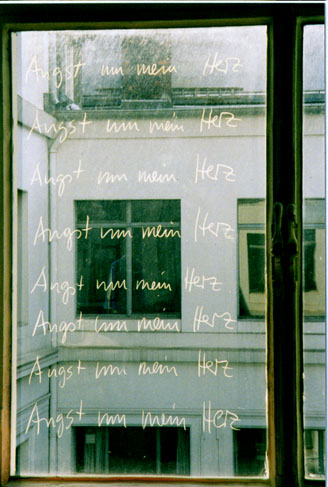 Angst um mein Herz
Angst um mein Herz
Angst um mein Herz
Angst um mein Herz
Angst um mein Herz
Angst um mein Herz
Angst um mein Herz
Angst um mein Herz